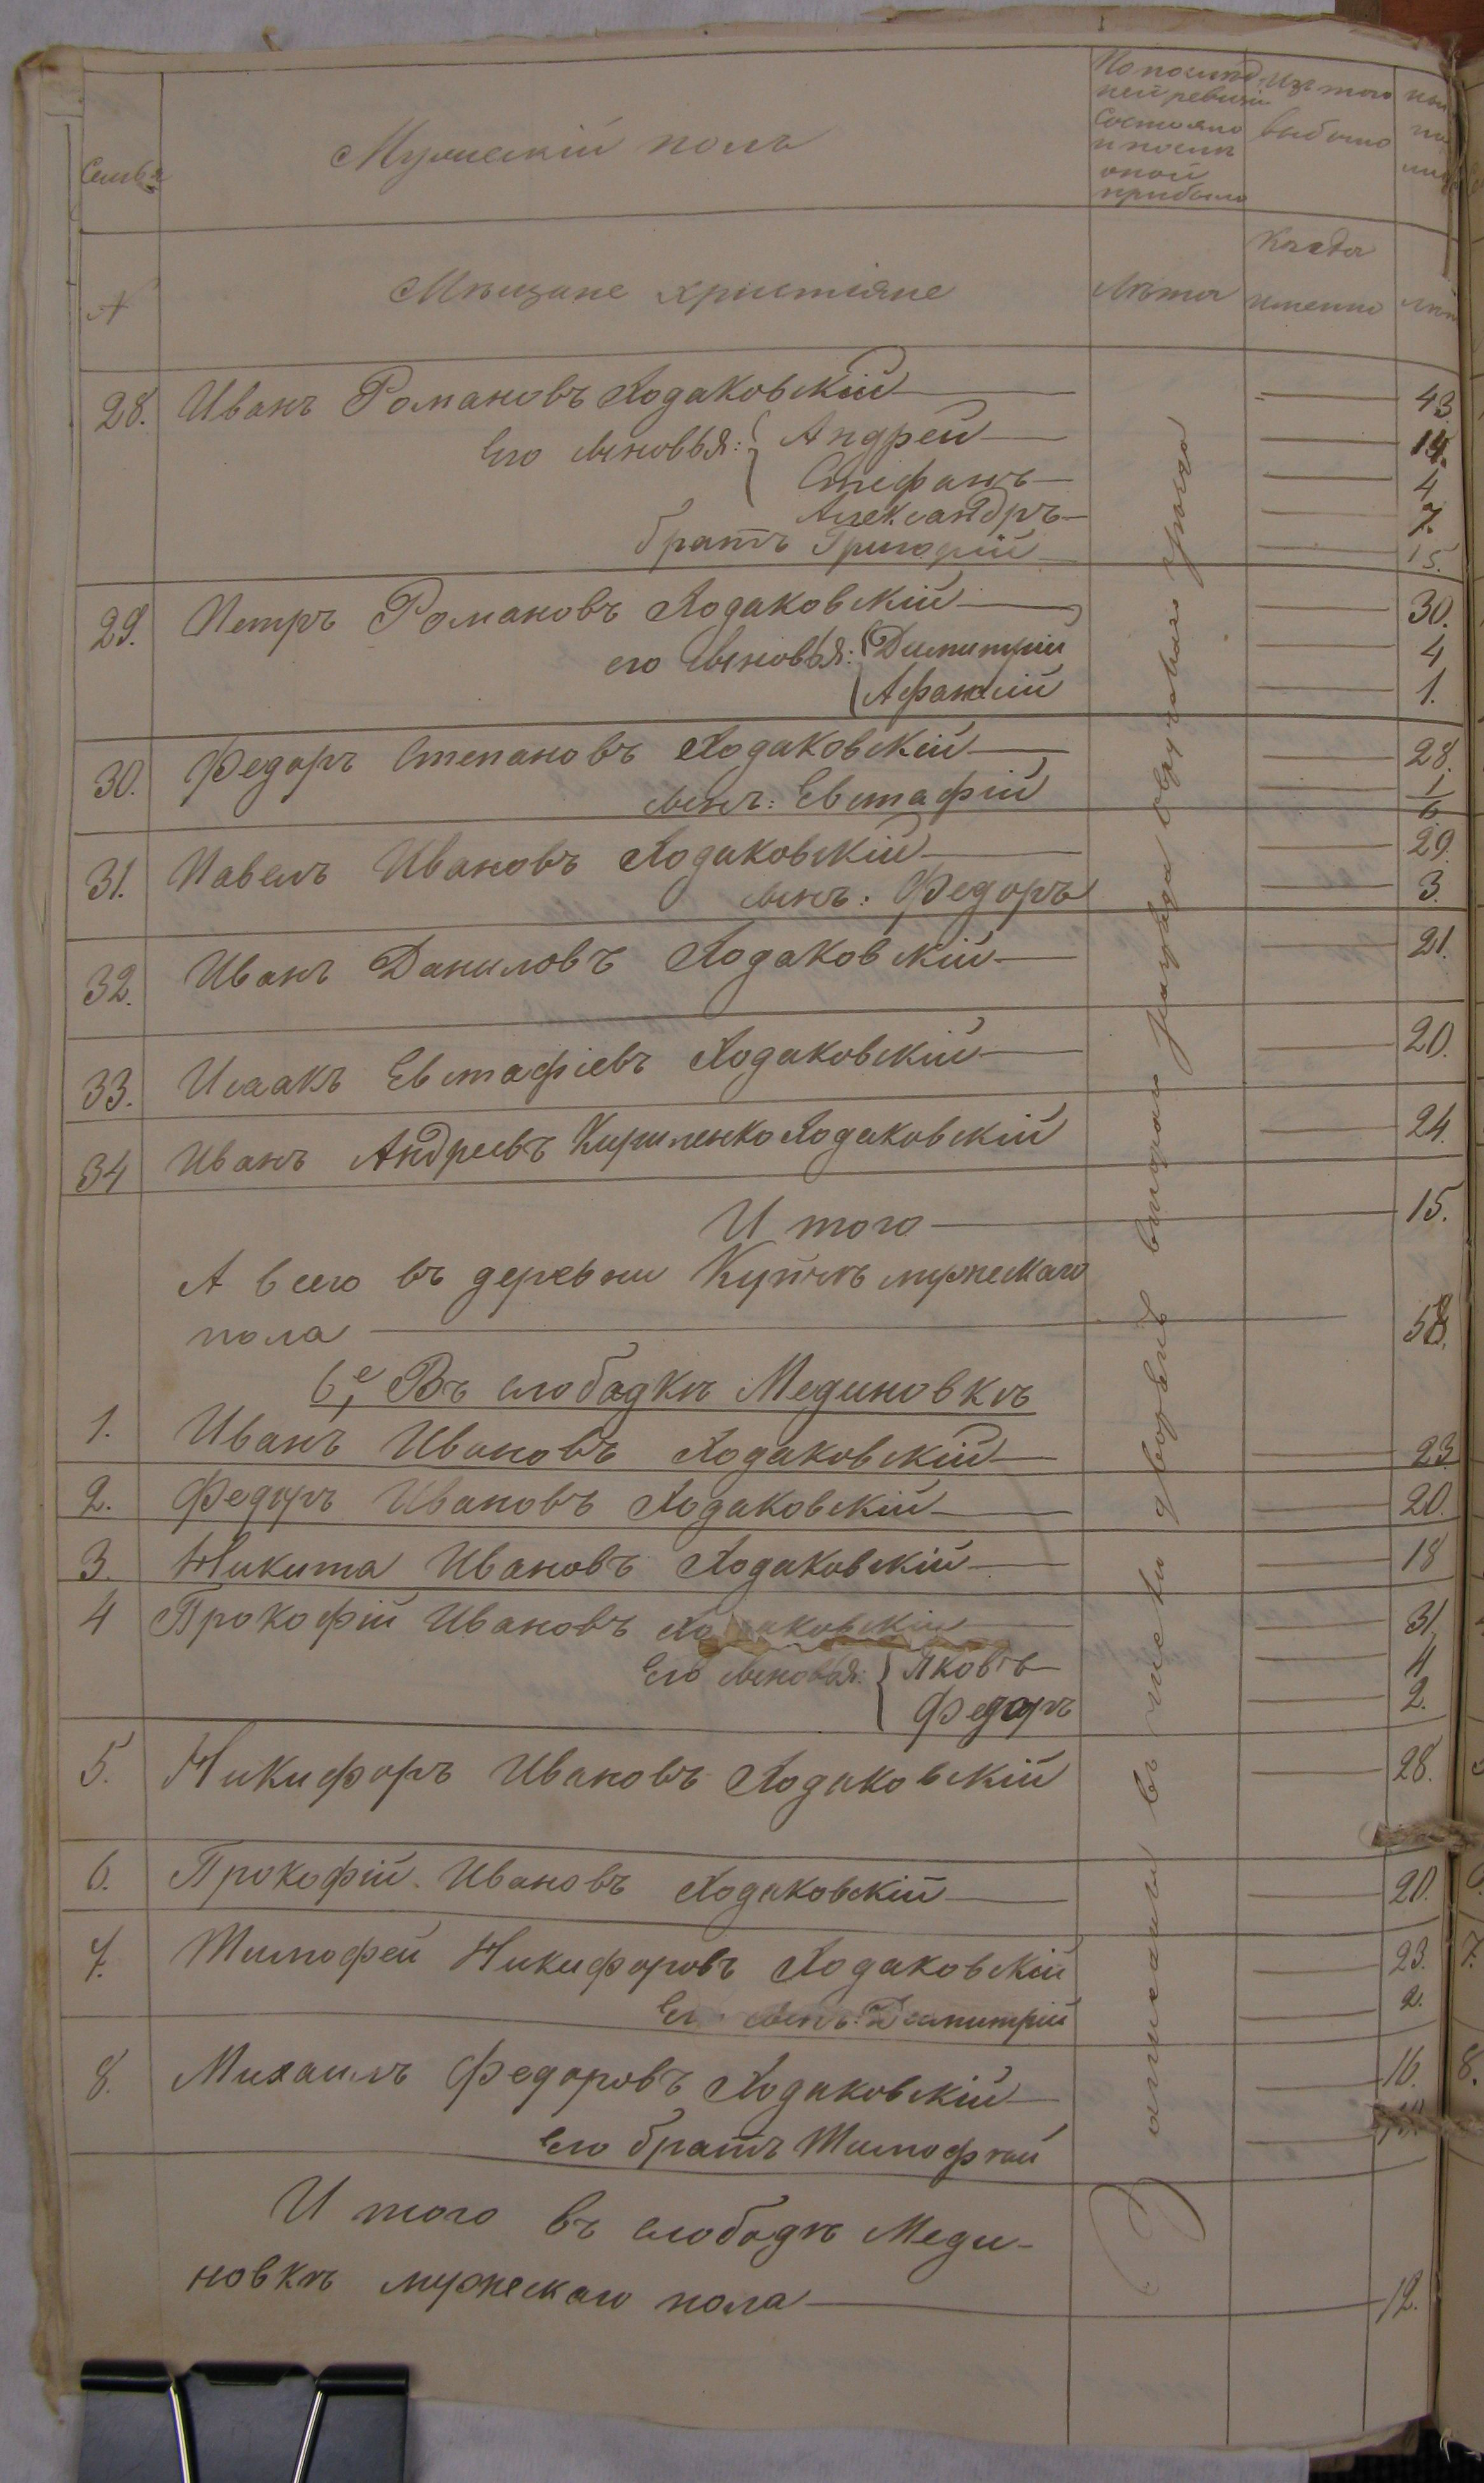 Семья
Мужескій полъ
По послѣд
ней ревизіи
состояло
и послѣ
оной
прибыло
Изъ того
выбыло
№
Мѣщане христіяне
Лѣта
Когда
именно
28. Иванъ Романовъ Ходаковскій 43
Его сыновья: Андрей 14.
Стефанъ 4
Александръ 7.
братъ Григорій 15.
29. Петръ Романовъ Ходаковскій 30.
его сыновья: Димитрій 4
Афанасій 1.
30. Федоръ Степановъ Ходаковскій 28.
сынъ: Евстафій 1/6
31. Павелъ Ивановъ Ходаковскій 29.
сынъ: Федоръ 3.
32. Иванъ Даниловъ Ходаковскій 21.
33. Исаакъ Евстафіевъ Ходаковскій 20.
34 Иванъ Андреевъ Кириленко Ходаковскій 24.
И того 15.
А всего въ деревни мужескаго
пола 58.
6е, Въ слободкѣ Мединовкѣ
1. Иванъ Ивановъ Ходаковскій 23
2. Федоръ Ивановъ Ходаковскій 20.
3. Никита Ивановъ Ходаковскій 18
4 Прокофій Ивановъ Ходаковскій 31.
Его сыновья: Яковъ 4
Федоръ 2.
5. Никифоръ Ивановъ Ходаковскій 28.
6. Прокофій Ивановъ Ходаковскій 20.
7. Тимофей Никифоровъ Ходаковскій 23.
Его сынъ: Димитрій 2.
8. Михаилъ Федоровъ Ходаковскій 16.
Его братъ Тимофѣй
И того въ слободкѣ Меди-
новкѣ мужескаго пола 12.
записаны въ числѣ дворянъ втораго разряда